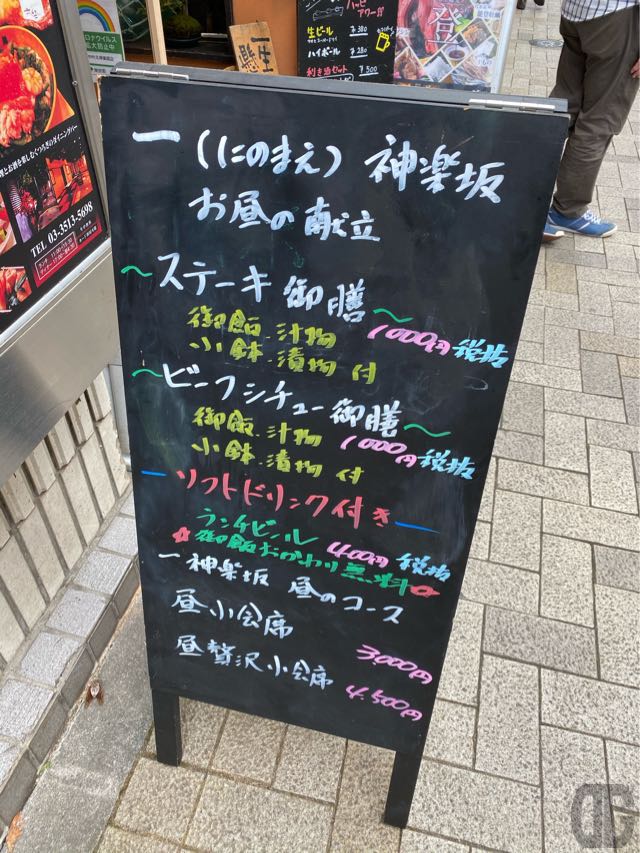 一(にのまえ) 神楽坂
お昼の献立
~ステーキ御膳~
御飯.汁物
小鉢.漬物 付
1000円 税抜
~ビーフシチュー御膳~
御飯.汁物
小鉢.漬物 付
1000円 税抜
ーソフトドリンク付きー
ランチビール 400円 税抜
☆御飯おかわり無料☆
一 神楽坂 昼のコース
昼小会席 3,000円
昼贅沢小会席 4,500円
生ビール ¥380
ハイボール ¥280
利き酒セット ¥500
TEL 03-3513-5698